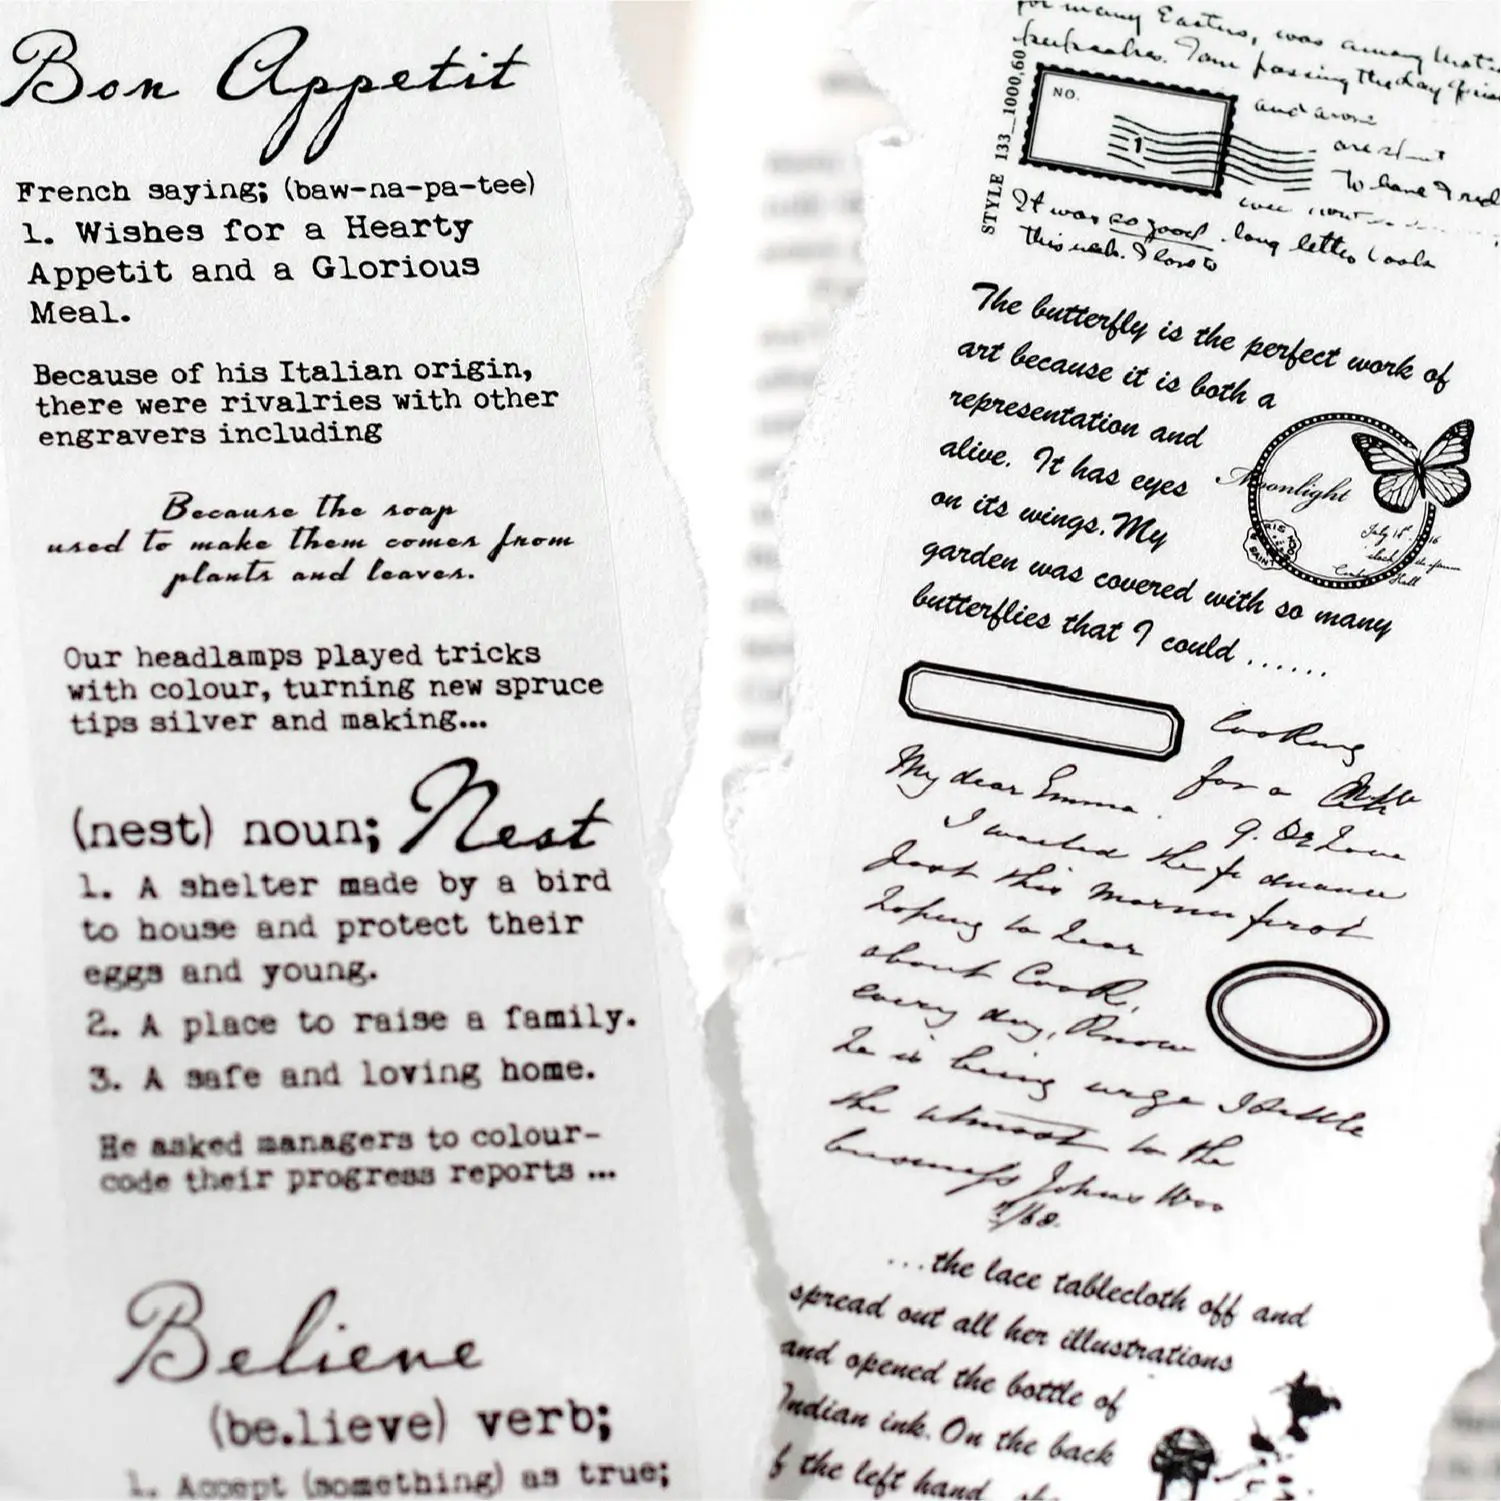 Bon Appetit
French saying; (baw-na-pa-tee)
1. Wishes for a Hearty
Appetit and a Glorious
Meal.
Because of his Italian origin,
there were rivalries with other
engravers including
Because the soap
used to make them comes from
plants and leaves.
Our headlamps played tricks
with colour, turning new spruce
tips silver and making...
(nest) noun; Nest
1. A shelter made by a bird
to house and protect their
eggs and young.
2. A place to raise a family.
3. A safe and loving home.
He asked managers to colour-
code their progress reports ...
Believe
(be.lieve) verb;
1. Accept (something) as true;
for many Easters, was among
I am passing the day
STYLE 133_1000,60
NO.
1
and
To have I
It was so good. long letter
this week. I love to
The butterfly is the perfect work of
art because it is both a
representation and
alive. It has eyes
on its wings. My
garden was covered with so many
butterflies that I could ......
Moonlight
July 15th
Hall
looking
for a
My dear Emma
I wanted the
Just this first
hoping to hear
about Cook,
every day, Know
he is being urge
the utmost to the
business Johns Woo
...the lace tablecloth off and
spread out all her illustrations
and opened the bottle of
Indian ink. On the back
f the left hand